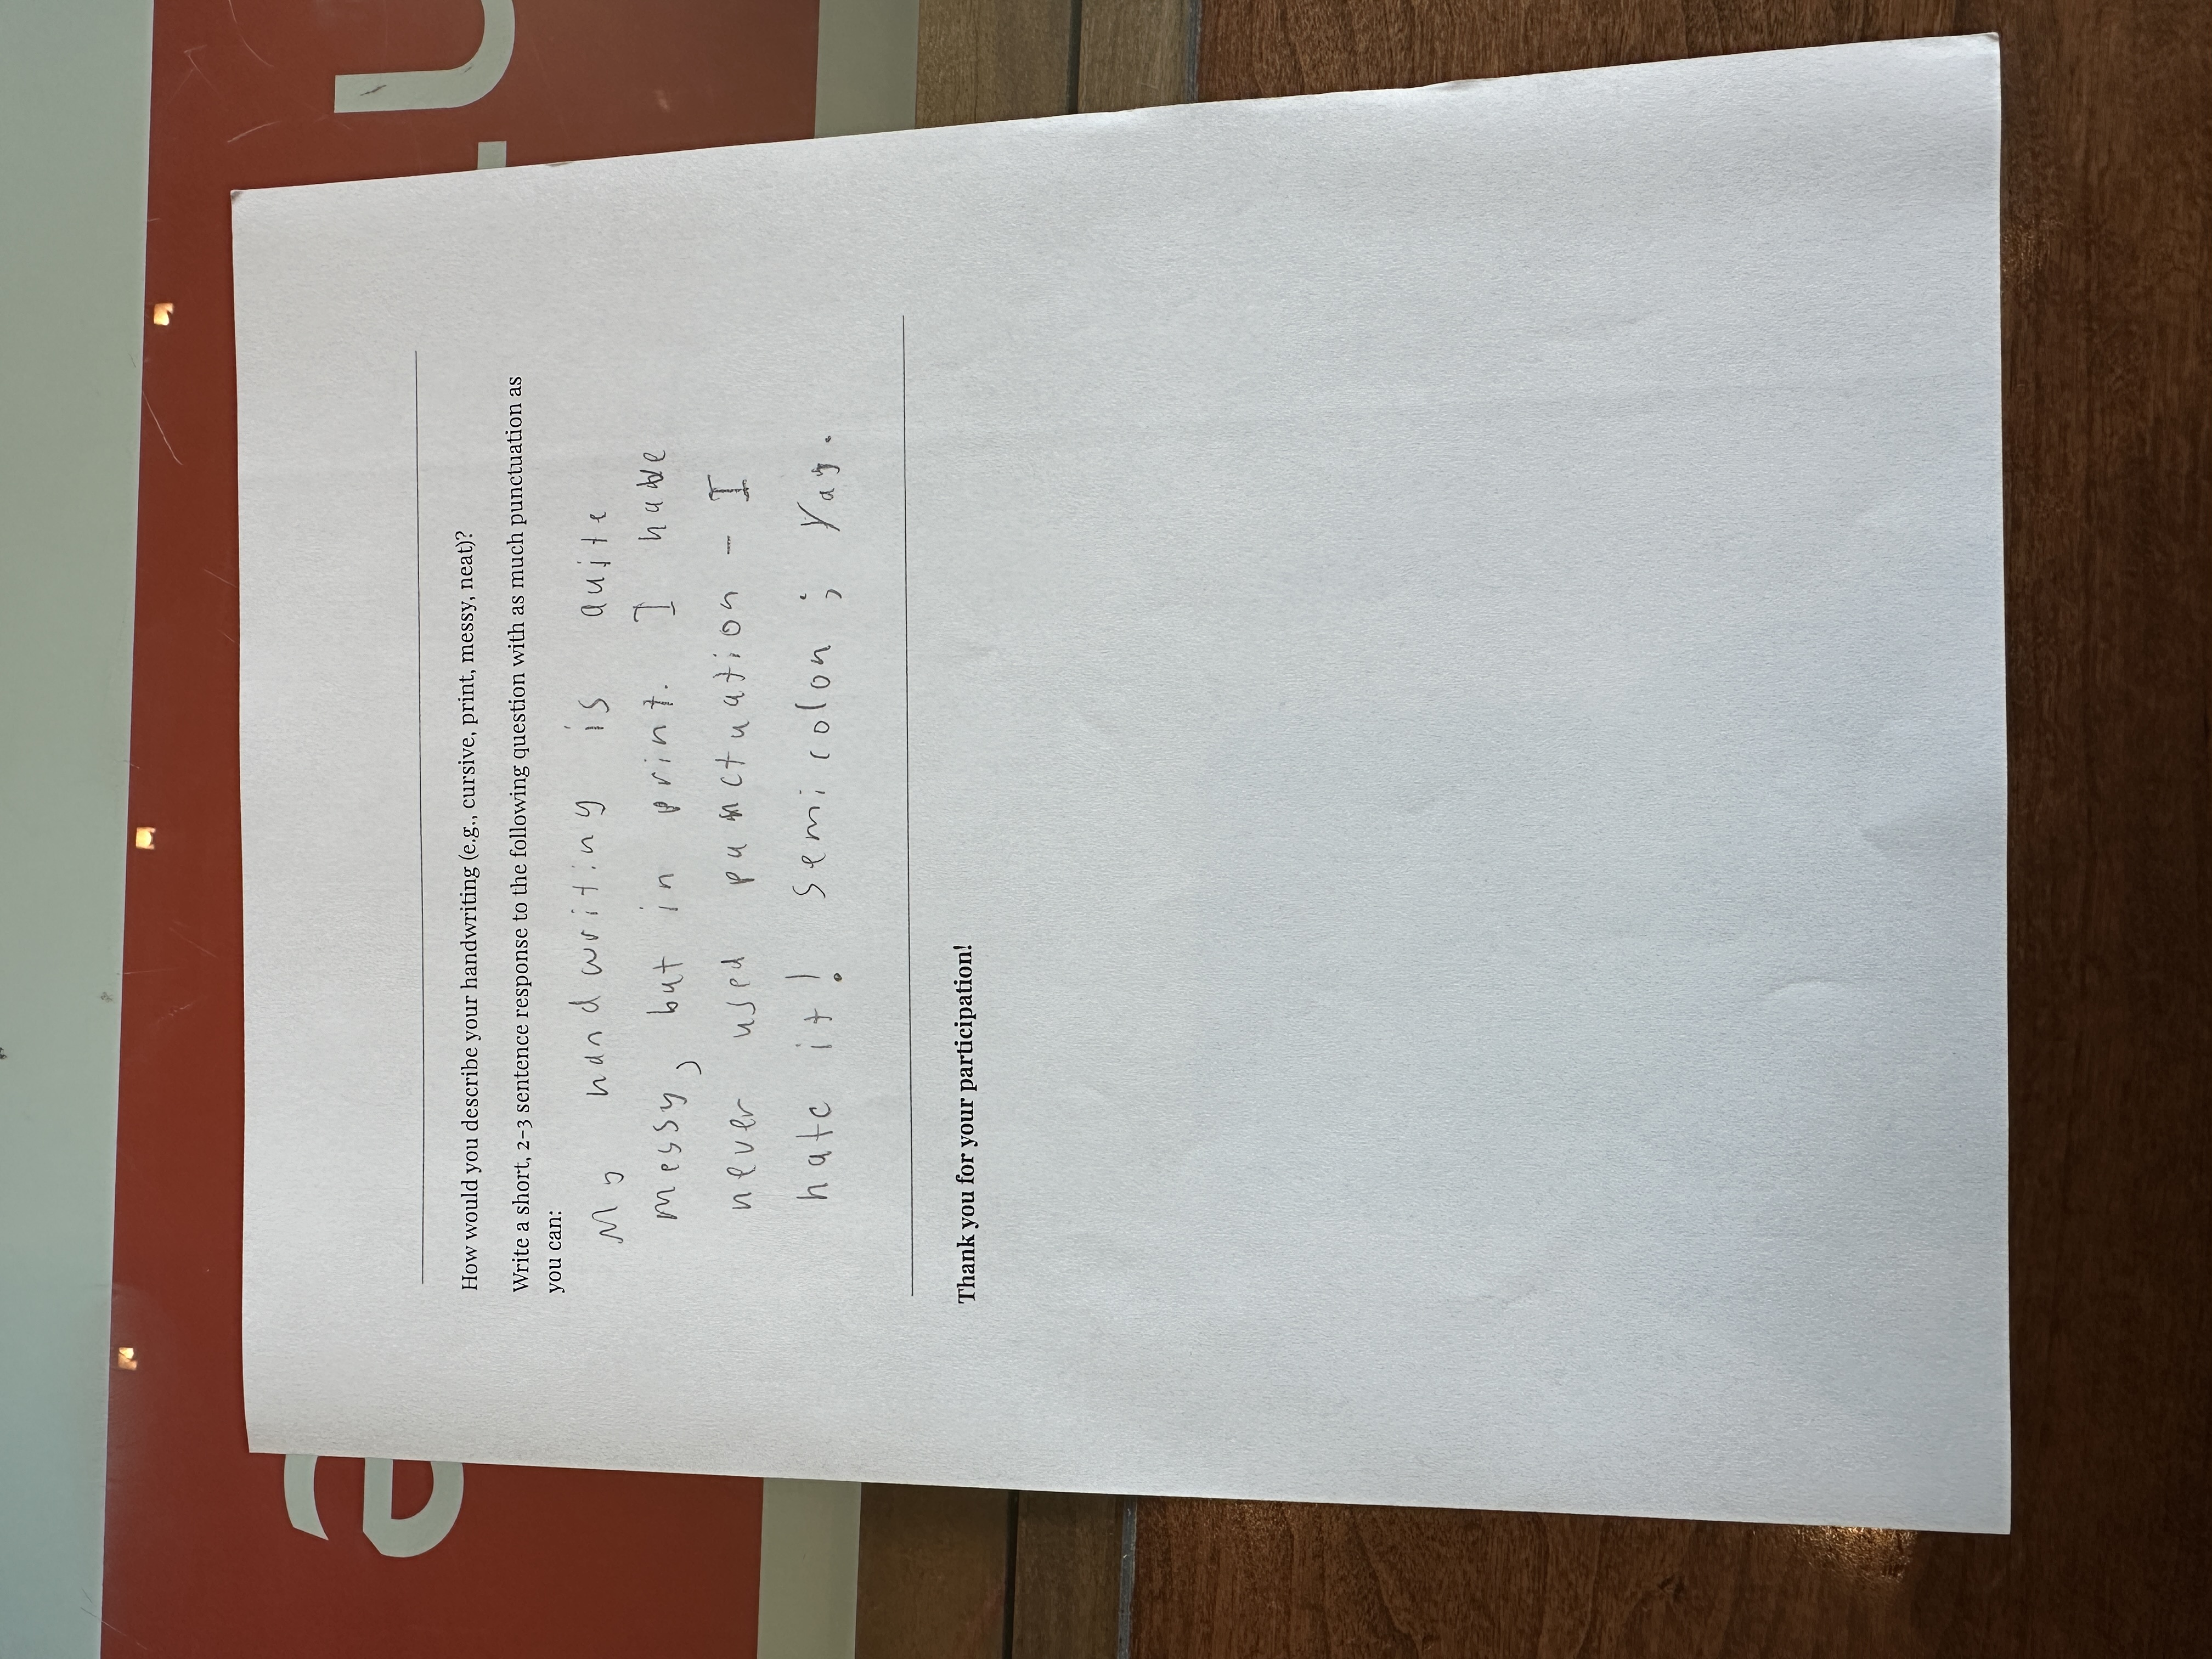 How would you describe your handwriting (e.g., cursive, print, messy, neat)?
Write a short, 2-3 sentence response to the following question with as much punctuation as
you can:
My handwriting is quite
messy, but in print. I have
never used punctuation - I
hate it! Semicolon ; Yay.
Thank you for your participation!